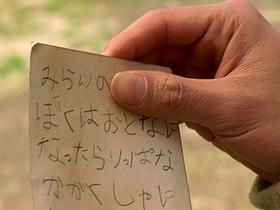 みらいの
ぼくはおとなに
なったらりっぱな
かがくしゃに